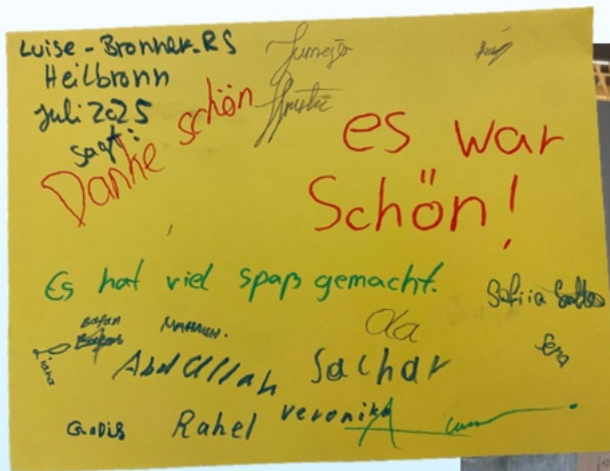 Luise-Bronner-RS
Heilbronn
Juli 2025
sagt:
Danke schön
es war
Schön!
Es hat viel spaß gemacht.
Sofiia
Sena
Ola
Liana
Abdallah
Sachar
Rahel
Veronika